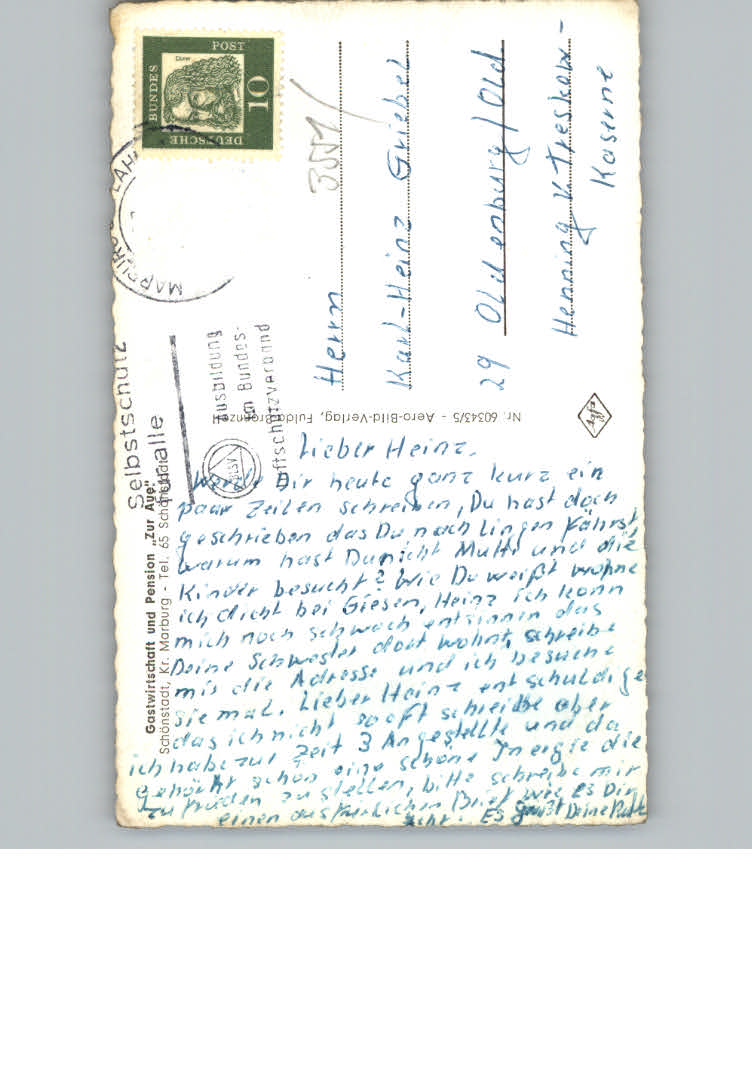 Dürer
DEUTSCHE
BUNDES
POST
10
MARBURG LAHN
Selbstschutz
für alle
Ausbildung
im Bundes-
luftschutzverband
BLSV
Gastwirtschaft und Pension „Zur Aue"
Schönstadt, Kr. Marburg - Tel. 65 Schönstadt
Nr. 60343/5 - Aero-Bild-Verlag, Fulda-Bronzell
Agfa
Herrn
Karl-Heinz Griebel
29 Oldenburg/Old
Henning v. Treskow-
Kaserne
Lieber Heinz.
Werde Dir heute ganz kurz ein
paar Zeilen schreiben, Du hast doch
geschrieben das Du nach Lingen fährst
warum hast Du nicht Mutti und die
Kinder besucht? Wie Du weißt wohne
ich dicht bei Giesen, Heinz ich kann
mich noch schwach entsinnen das
Deine Schwester dort wohnt, schreibe
mir die Adresse und ich besuche
sie mal. Lieber Heinz entschuldige
das ich nicht so oft schreibe aber
ich habe zur Zeit 3 Angestellte und da
gehöhrt schon eine schöne Inergie die
zu frieden zu stellen, bitte schreibe mir
einen ausführlichen Brief wie es Dir
geht. Es grüßt Deine